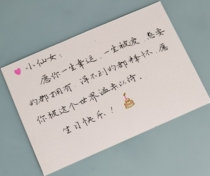 小仙女:
愿你一生幸运 一生被爱 想要
的都拥有 得不到的都释怀 愿
你被这个世界温柔以待.
生日快乐!